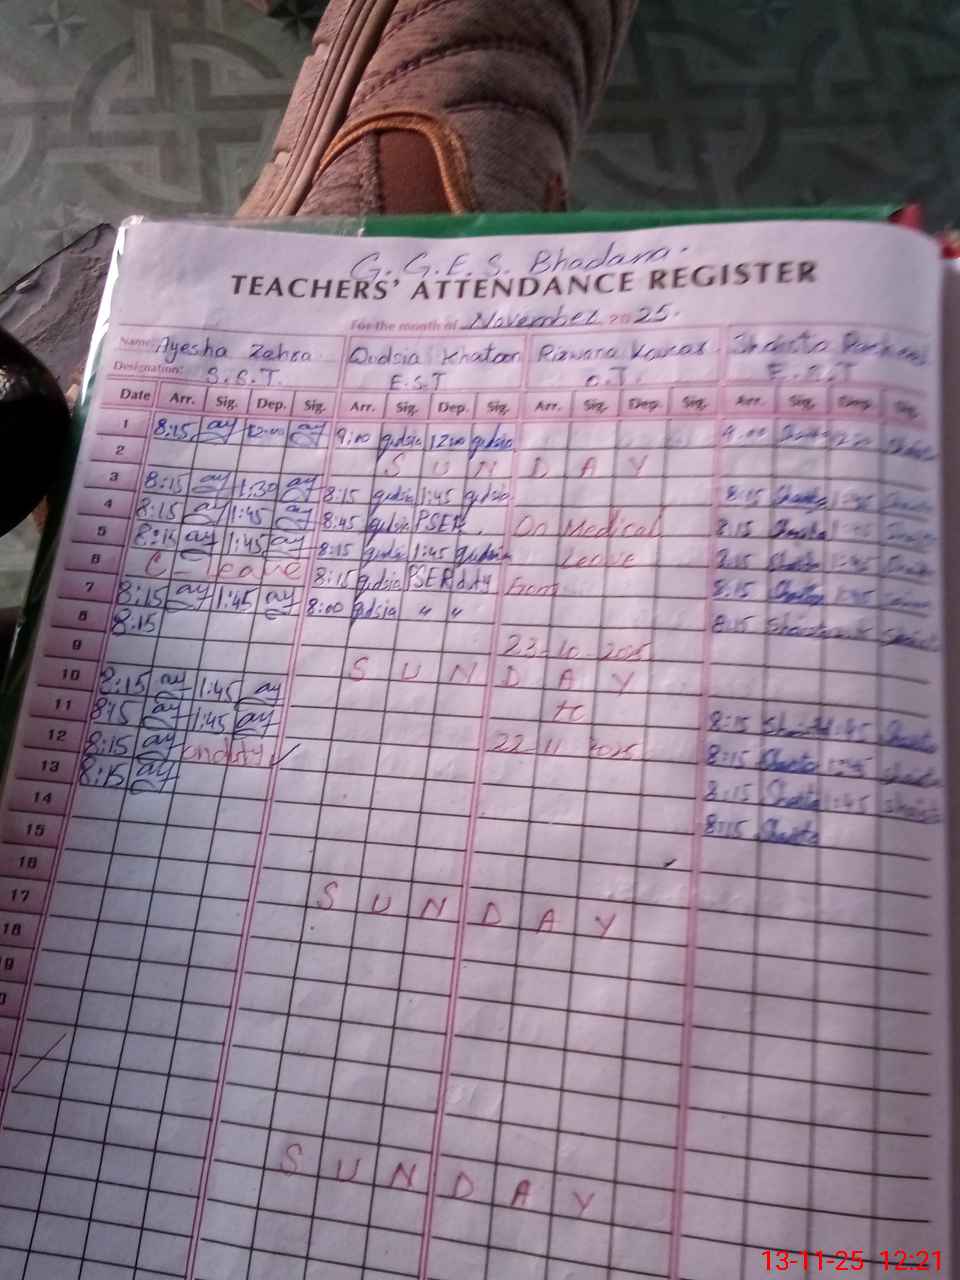 G. G. E. S. Bhadana.
TEACHERS' ATTENDANCE REGISTER
For the month of November 2025.
Name: Ayesha Zahra Qudsia Khatoon Rizwana Kousar
Designation: S.S.T. E.S.T O.T. E.S.T
Date Arr. Sig. Dep. Sig. Arr. Sig. Dep. Sig. Arr. Sig. Dep. Sig. Arr. Sig. Dep. Sig.
1 8:15 ay 12:00 ay 9:00 qudsia 12:00 qudsia 9:00
2 S U N D A Y
3 8:15 ay 1:30 ay 8:15 qudsia 1:45 qudsia 8:15 1:45
4 8:15 ay 1:45 ay 8:45 qudsia PSER. On Medical 8:15 1:45
5 8:15 ay 1:45 ay 8:15 qudsia 1:45 qudsia Leave 8:15 1:45
6 C Leave 8:15 qudsia PSER duty From 8:15 1:45
7 8:15 ay 1:45 ay 8:00 qudsia " " 8:15
8 8:15 23-10-2025
9 S U N D A Y
10 8:15 ay 1:45 ay to 8:15 1:45
11 8:15 ay 1:45 ay 22-11-2025 8:15 1:45
12 8:15 ay on duty 8:15 1:45
13 8:15 ay 8:15
14
15
16 S U N D A Y
17
18
9
0
S U N D A Y
13-11-25 12:21